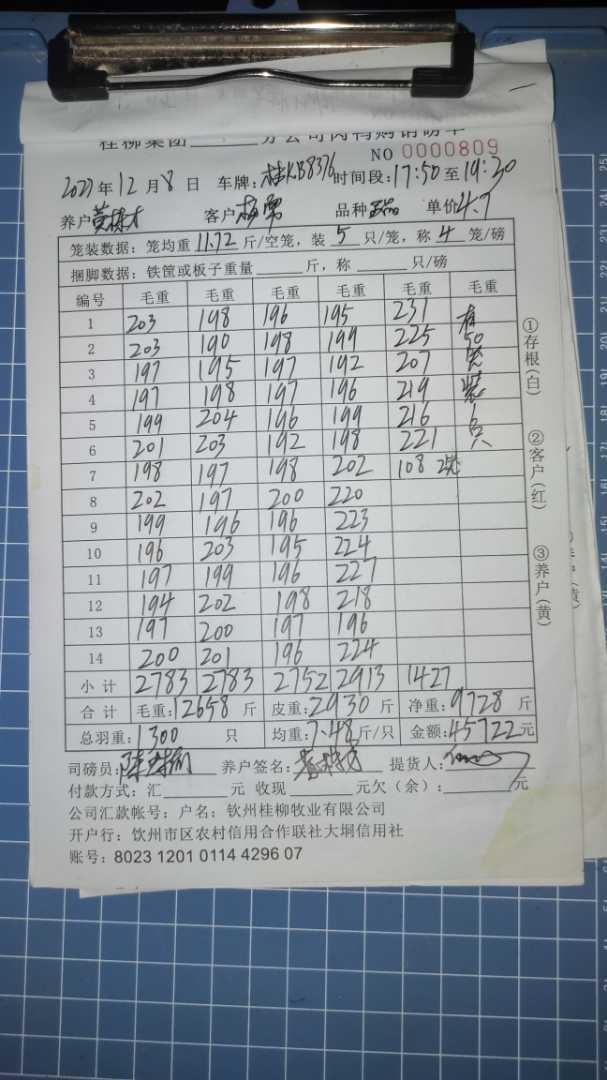 桂柳集团______分公司肉鸭购销磅单
NO 0000809
2021年12月8日 车牌:桂KB8376 时间段:17:50至19:30
养户 客户 品种 单价4.7
笼装数据:笼均重11.72斤/空笼,装5只/笼,称4笼/磅
捆脚数据:铁筐或板子重量______斤,称______只/磅
编号 毛重 毛重 毛重 毛重 毛重 毛重
1 203 198 196 195 231 有
2 203 190 198 199 225 50
3 197 195 197 192 207 笼
4 197 198 197 196 219 装
5 199 204 196 199 216 1
6 201 203 192 198 221 只
7 198 197 198 202 108 2笼
8 202 197 200 220
9 199 196 196 223
10 196 203 195 224
11 197 199 196 227
12 194 202 198 218
13 197 200 197 196
14 200 201 196 224
小计 2783 2783 2752 2913 1427
合计 毛重:12658斤 皮重:2930斤 净重:9728斤
总羽重:1300只 均重:7.48斤/只 金额:45722元
司磅员: 养户签名: 提货人:
付款方式:汇______元 收现______元欠(余):______元
公司汇款帐号:户名:钦州桂柳牧业有限公司
开户行:钦州市区农村信用合作联社大垌信用社
账号:8023 1201 0114 4296 07
①存根(白)
②客户(红)
③养户(黄)